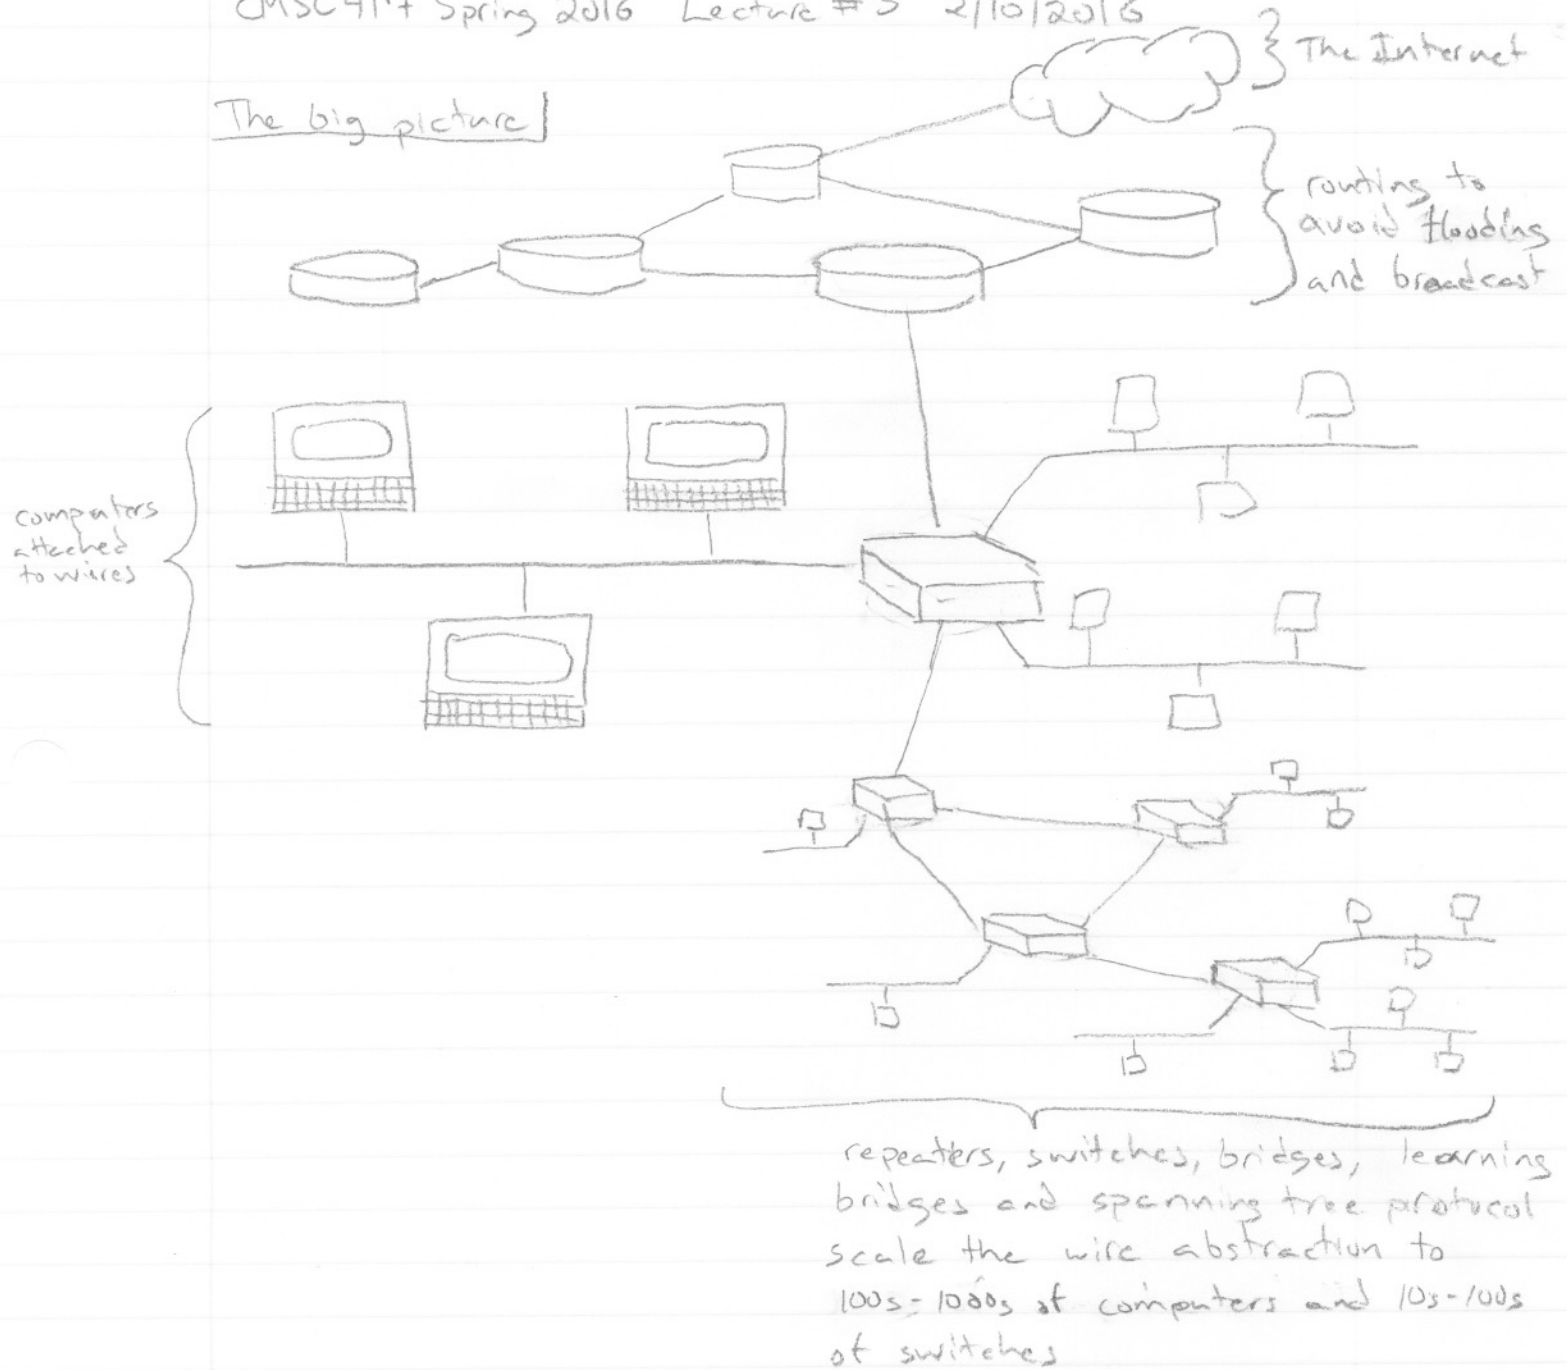 CMSC 417 Spring 2016 Lecture #5 2/10/2016
The Internet
The big picture
routing to
avoid flooding
and broadcast
computers
attached
to wires
repeaters, switches, bridges, learning
bridges and spanning tree protocol
scale the wire abstraction to
100s-1000s of computers and 10s-100s
of switches